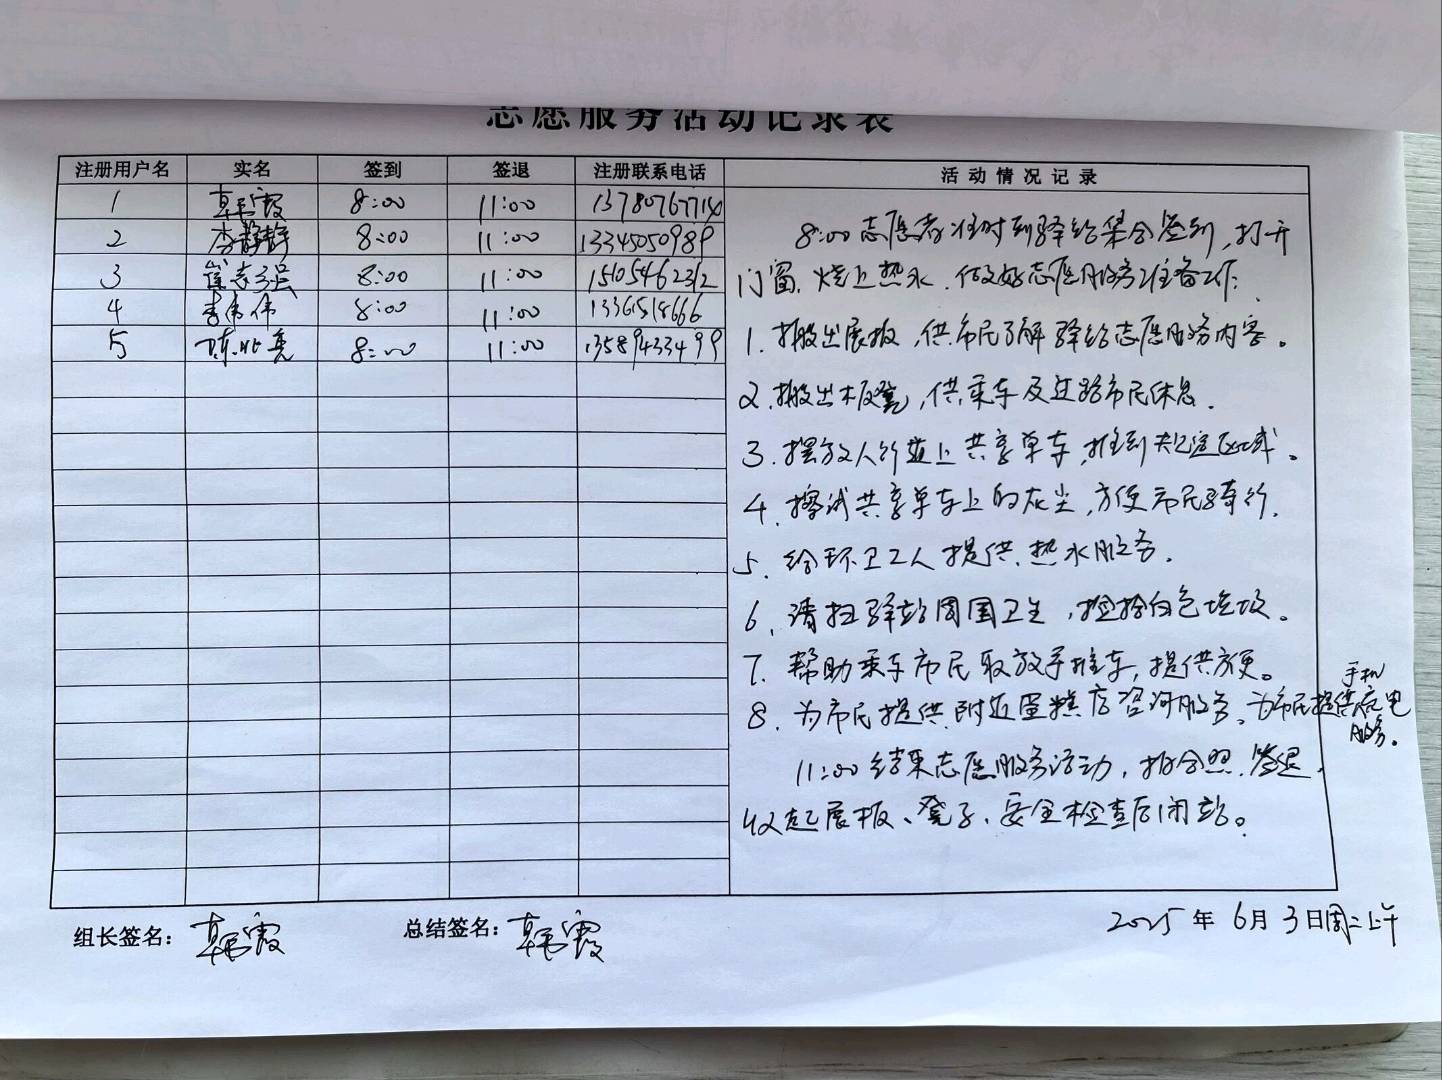 志愿服务活动记录表
注册用户名 实名 签到 签退 注册联系电话 活动情况记录
1 韩霞 8:00 11:00 13780767714
2 李静静 8:00 11:00 13345050989
3 崔志强 8:00 11:00 15105462312
4 李伟伟 8:00 11:00 13361518666
5 陈兆亮 8:00 11:00 13589433499
8:00志愿者准时到驿站集合签到,打开
门窗,烧上热水,做好志愿服务准备工作.
1.搬出展板,供市民了解驿站志愿服务内容。
2.搬出板凳,供乘车及过路市民休息.
3.摆放人行道上共享单车,推到规定区域。
4.擦拭共享单车上的灰尘,方便市民骑行.
5.给环卫工人提供热水服务.
6.清扫驿站周围卫生,捡拾白色垃圾。
7.帮助乘车市民取放手推车,提供方便。
8.为市民提供附近蛋糕店咨询服务、为市民提供手机充电
服务。
11:00结束志愿服务活动,拍合照.签退,
收起展板、凳子、安全检查后闭站。
组长签名:韩霞 总结签名:韩霞 2025年6月3日周二上午